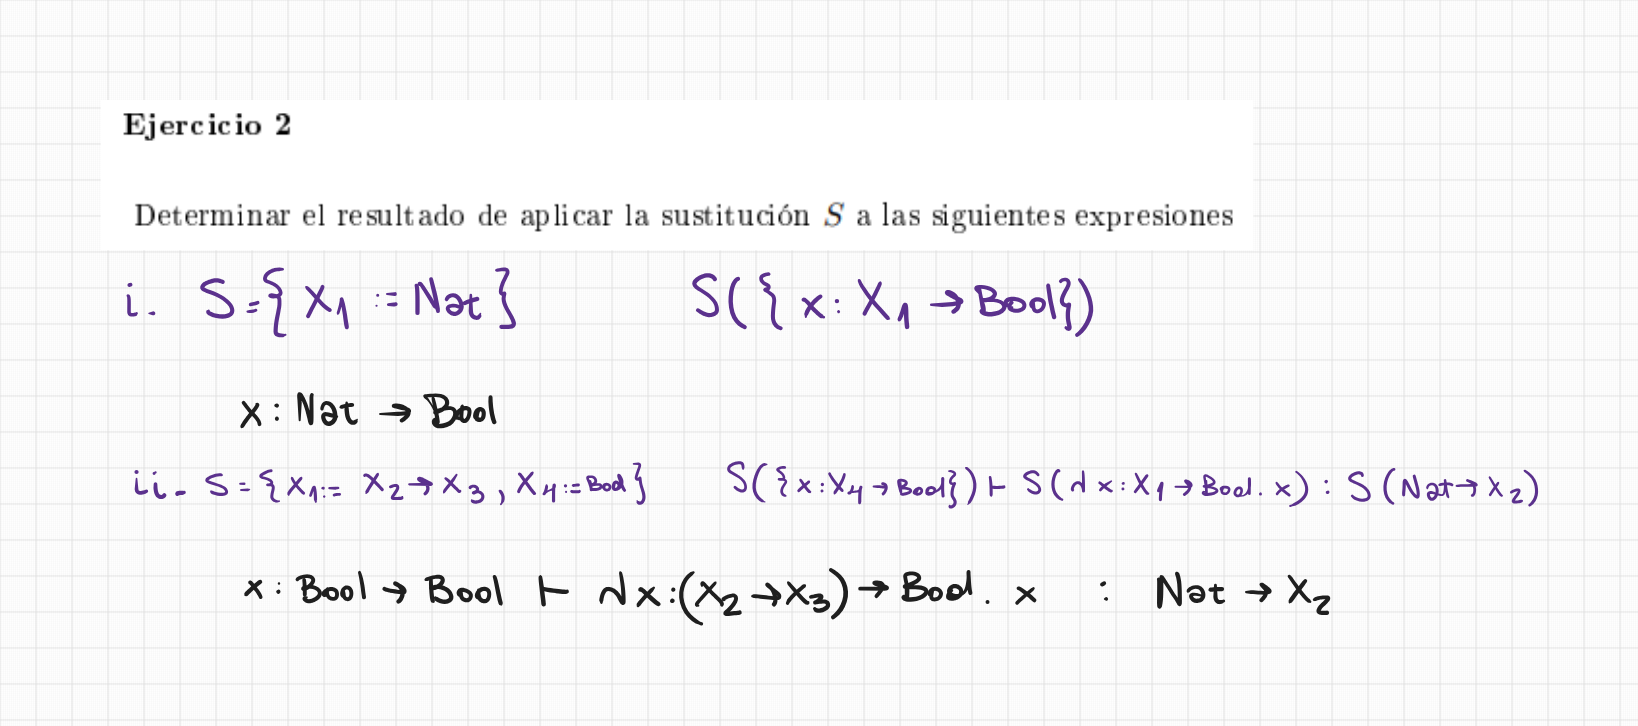 Ejercicio 2
Determinar el resultado de aplicar la sustitución S a las siguientes expresiones
i. S={ X₁ := Nat } S({ x: X₁ → Bool})
x: Nat → Bool
ii- S={X₁:= X₂→X₃, X₄:=Bool} S({x:X₄→Bool}) ⊢ S(λx:X₁→Bool. x) : S(Nat→X₂)
x: Bool → Bool ⊢ λx:(X₂→X₃)→Bool. x : Nat → X₂